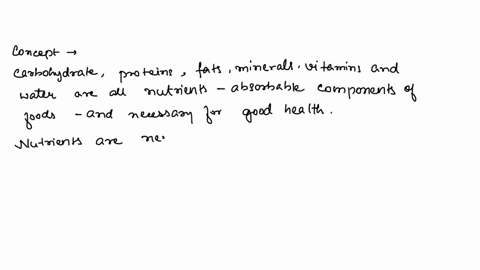 Concept →
Carbohydrate, proteins, fats, minerals. vitamins and
water are all nutrients - absorbable components of
foods - and necessary for good health.
Nutrients are ne